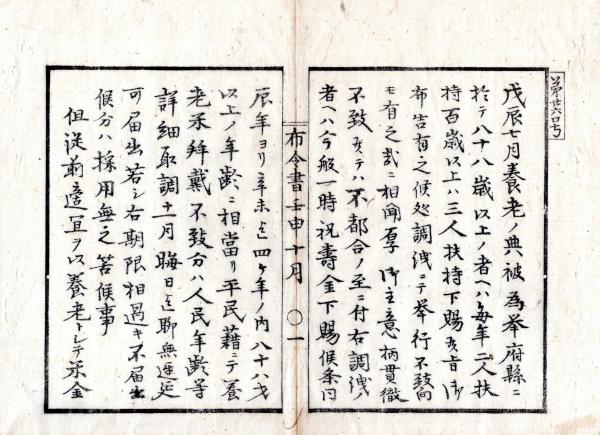 第廿六口号
戊辰七月養老ノ典被為挙府縣ニ
於テ八十八歳以上ノ者ヘハ毎年二人扶
持百歳以上ハ三人扶持下賜候旨御
布告有之候処調洩ニテ挙行不致向
モ有之哉ニ相聞厚御主意柄貫徹
不致候テハ不都合ノ至ニ付右調洩ノ
者ヘハ今般一時祝壽金下賜候条
布令書壬申十月 〇一
辰年ヨリ辛未迄四ケ年ノ内八十八才
以上ノ年齢ニ相當リ平民藉ニテ養
老米拜戴不致分ハ人民年齢等
詳細取調十一月晦日迄聊無遅延
可届出若シ右期限相過キ不届出
候分ハ採用無之筈候事
但従前適宜ヲ以養老トシテ米金